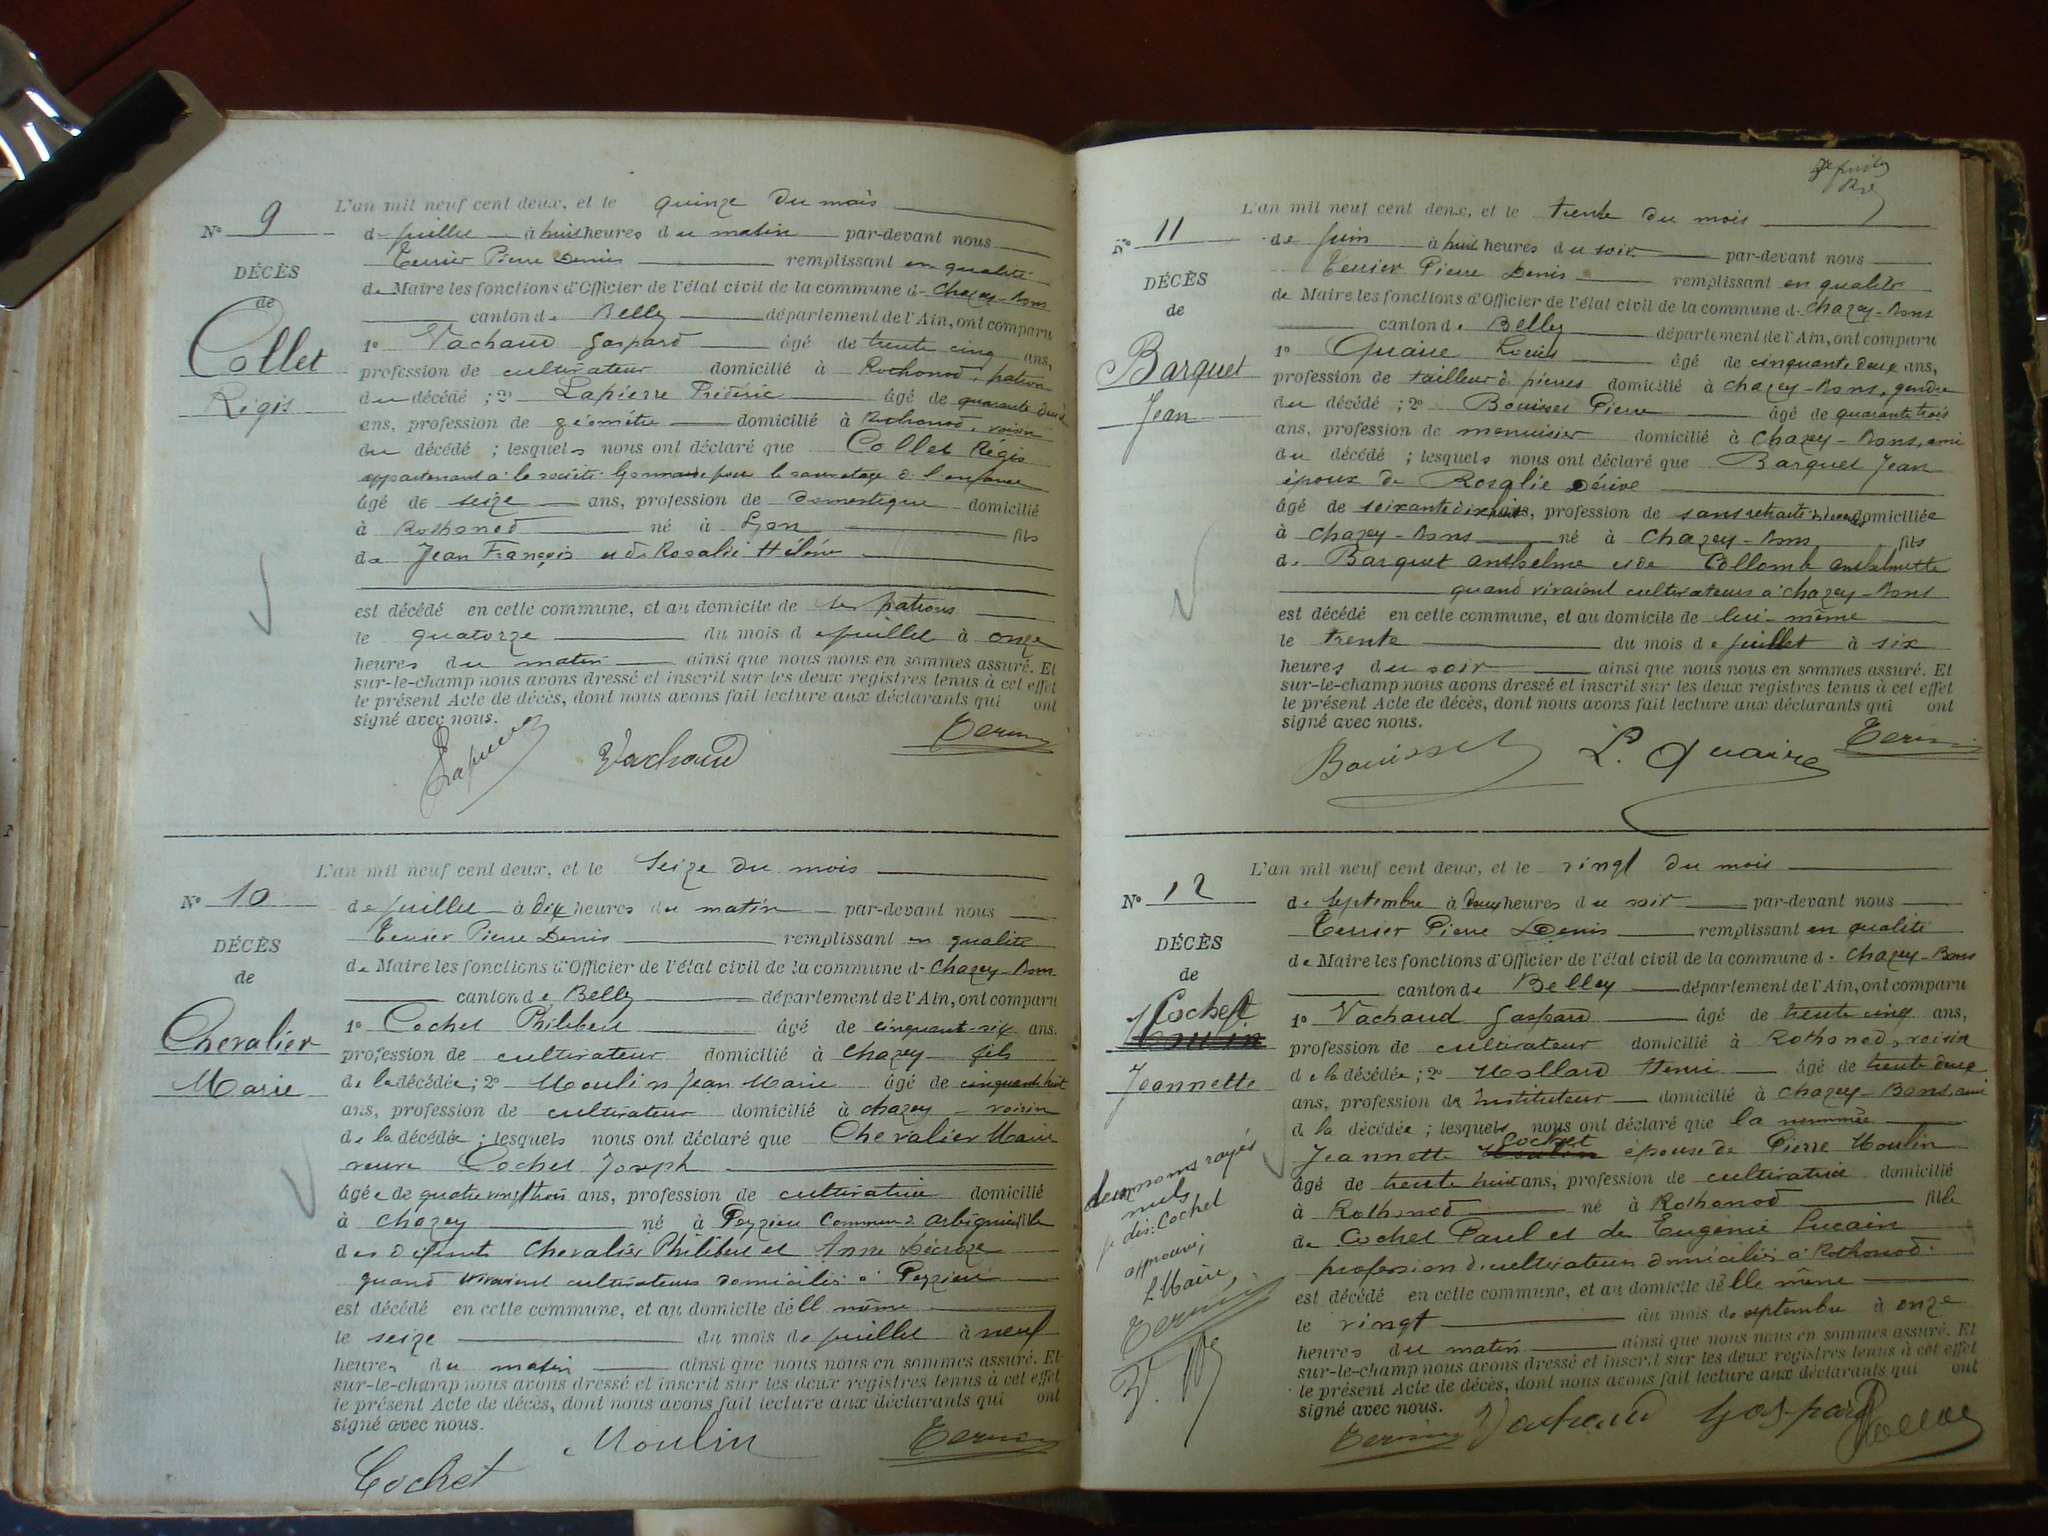 L'an mil neuf cent deux, et le quinze du mois
N° 9
de juillet à huit heures du matin par-devant nous
Terrier Pierre Denis remplissant en qualité
DÉCÈS
de
de Maire les fonctions d'Officier de l'état civil de la commune d. Chazey-Bons
canton de Belley département de l'Ain, ont comparu
Collet
Régis
1° Vachaud Gaspard âgé de trente cinq ans,
profession de cultivateur domicilié à Rothonod, patron
du décédé ; 2° Lapierre Frédéric âgé de quarante deux
ans, profession de géomètre domicilié à Rothonod, voisin
du décédé ; lesquels nous ont déclaré que Collet Régis
appartenant à la société lyonnaise pour le sauvetage de l'enfance
âgé de seize ans, profession de domestique domicilié
à Rothonod né à Lyon fils
de Jean François et de Rosalie Hélène
est décédé en cette commune, et au domicile de ses patrons
le quatorze du mois de juillet à onze
heures du matin ainsi que nous nous en sommes assuré. Et
sur-le-champ nous avons dressé et inscrit sur les deux registres tenus à cet effet
le présent Acte de décès, dont nous avons fait lecture aux déclarants qui ont
signé avec nous.
Vachaud
L'an mil neuf cent deux, et le seize du mois
N° 10
de juillet à dix heures du matin par-devant nous
Terrier Pierre Denis remplissant en qualité
DÉCÈS
de
de Maire les fonctions d'Officier de l'état civil de la commune d. Chazey-Bons
canton de Belley département de l'Ain, ont comparu
Chevalier
Marie
1° Cochet Philibert âgé de cinquante-six ans.
profession de cultivateur domicilié à Chazey fils
de la décédée ; 2° Moulin Jean Marie âgé de cinquante huit
ans, profession de cultivateur domicilié à Chazey voisin
de la décédée ; lesquels nous ont déclaré que Chevalier Marie
veuve Cochet Joseph
âgée de quatre vingt trois ans, profession de cultivatrice domicilié
à Chazey né à Peyzieu commune d'Arbignieu fille
des défunts Chevalier Philibert et Anne Décroze
quand vivaient cultivateurs domiciliés à Peyzieu
est décédé en cette commune, et au domicile d'elle même
le seize du mois de juillet à neuf
heures du matin ainsi que nous nous en sommes assuré. Et
sur-le-champ nous avons dressé et inscrit sur les deux registres tenus à cet effet
le présent Acte de décès, dont nous avons fait lecture aux déclarants qui ont
signé avec nous.
Cochet Moulin
L'an mil neuf cent deux, et le trente du mois
N° 11
de juin à huit heures du soir par-devant nous
Terrier Pierre Denis remplissant en qualité
DÉCÈS
de
de Maire les fonctions d'Officier de l'état civil de la commune d. Chazey-Bons
canton de Belley département de l'Ain, ont comparu
Barquet
Jean
1° Quaire Louis âgé de cinquante deux ans,
profession de tailleur de pierres domicilié à Chazey-Bons, gendre
du décédé ; 2° Bouisset Pierre âgé de quarante trois
ans, profession de menuisier domicilié à Chazey-Bons, ami
du décédé ; lesquels nous ont déclaré que Barquet Jean
époux de Rosalie Dérive
âgé de soixante dix huit ans, profession de sans domicilié
à Chazey-Bons né à Chazey-Bons fils
de Barquet Anthelme et de Collomb Anthelmette
quand vivaient cultivateurs à Chazey-Bons
est décédé en cette commune, et au domicile de lui-même
le trente du mois de juillet à six
heures du soir ainsi que nous nous en sommes assuré. Et
sur-le-champ nous avons dressé et inscrit sur les deux registres tenus à cet effet
le présent Acte de décès, dont nous avons fait lecture aux déclarants qui ont
signé avec nous.
Bouisset L. Quaire
L'an mil neuf cent deux, et le vingt du mois
N° 12
de septembre à deux heures du soir par-devant nous
Terrier Pierre Denis remplissant en qualité
DÉCÈS
de
de Maire les fonctions d'Officier de l'état civil de la commune d. Chazey-Bons
canton de Belley département de l'Ain, ont comparu
Cochet
Moulin
Jeannette
1° Vachaud Gaspard âgé de trente cinq ans,
profession de cultivateur domicilié à Rothonod, voisin
de la décédée ; 2° Mollard Henri âgé de trente deux
ans, profession de Instituteur domicilié à Chazey-Bons, ami
de la décédée ; lesquels nous ont déclaré que la nommée
Cochet
Jeannette Moulin épouse de Pierre Moulin
âgé de trente huit ans, profession de cultivatrice domicilié
à Rothonod né à Rothonod fille
de Cochet Paul et de Eugénie Lucain
profession de cultivateurs domiciliés à Rothonod.
est décédé en cette commune, et au domicile d'elle même
le vingt du mois de septembre à onze
heures du matin ainsi que nous nous en sommes assuré. Et
sur-le-champ nous avons dressé et inscrit sur les deux registres tenus à cet effet
le présent Acte de décès, dont nous avons fait lecture aux déclarants qui ont
signé avec nous.
Vachaud Gaspard
deux noms rayés
nuls
je dis: Cochet
approuvé,
L Maire,